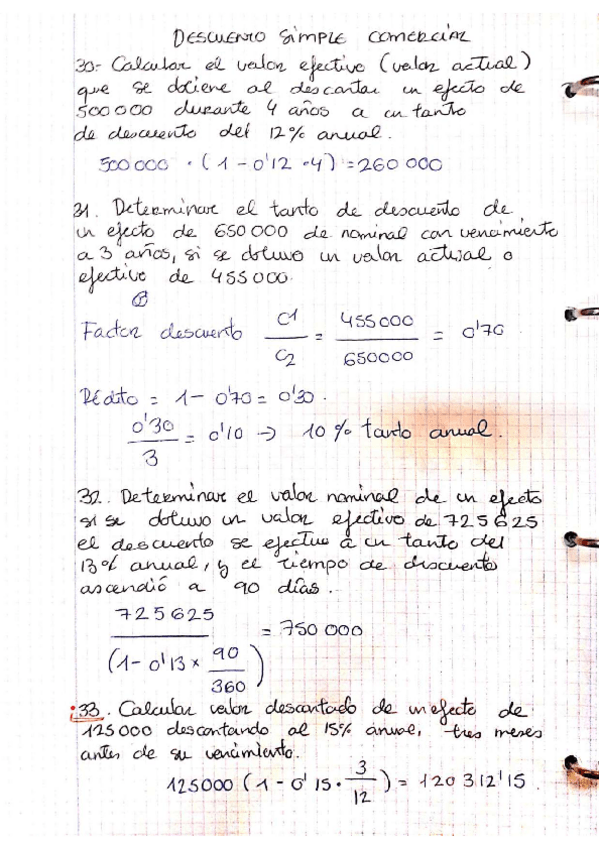 DESCUENTO SIMPLE COMERCIAL
30.- Calcular el valor efectivo (valor actual)
que se obtiene al descontar un efecto de
500 000 durante 4 años a un tanto
de descuento del 12% anual.
500 000 · (1 - 0'12 · 4) = 260 000
31. Determinar el tanto de descuento de
un efecto de 650 000 de nominal con vencimiento
a 3 años, si se obtuvo un valor actual o
efectivo de 455 000.
Factor descuento C1/C2 = 455 000/650000 = 0'70
Rédito = 1 - 0'70 = 0'30.
0'30/3 = 0'10 → 10% tanto anual.
32. Determinar el valor nominal de un efecto
si se obtuvo un valor efectivo de 725 625
el descuento se efectuo a un tanto del
13% anual, y el tiempo de descuento
ascendió a 90 días.
725 625/(1 - 0'13 × 90/360) = 750 000
¡33. Calcular valor descontado de un efecto de
125 000 descontando al 15% anual, tres meses
antes de su vencimiento.
125000 (1 - 0'15 · 3/12) = 120 312'15.